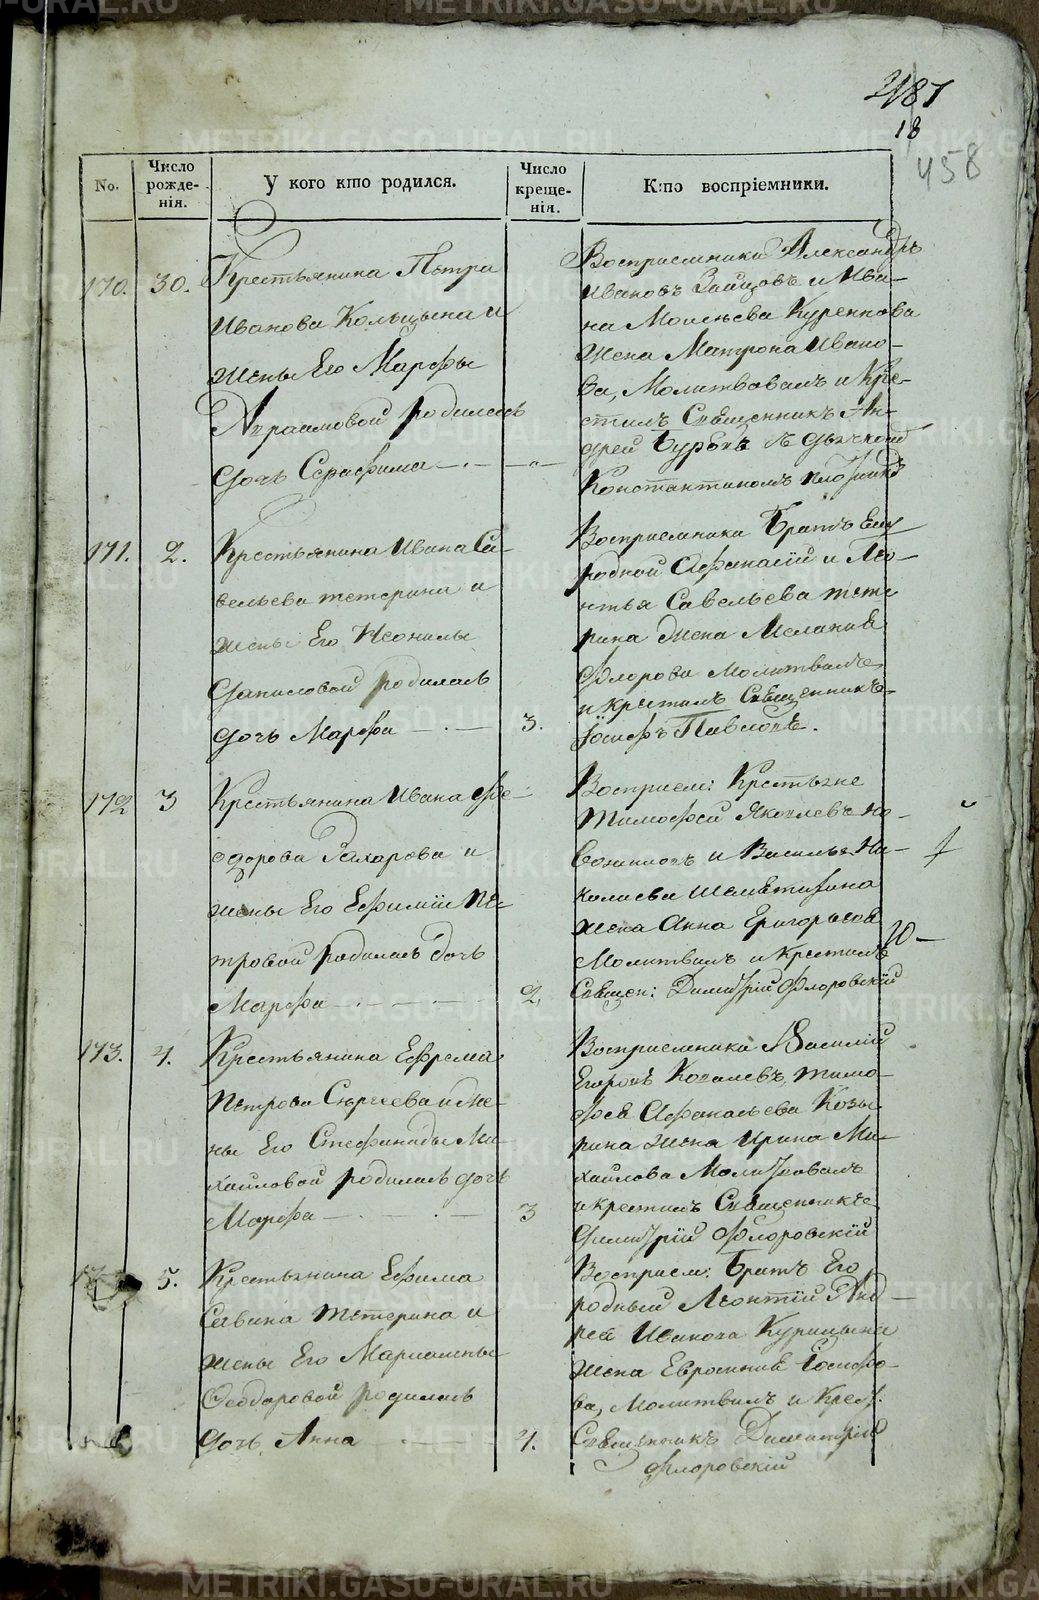 487
18
458
No.
Число рожде- нія.
У кого кто родился.
Число креще- нія.
Кто воспріемники.
170.
30.
Крестьянина Петра
Иванова Кольцына и
жены Его Марфы
Авраамовой родилась
дочь Серафима
Восприемники Александръ
Ивановъ Зайцовъ и Ива-
на Моисеева Куренкова
жена Матрона Ивано-
ва, Молитвовалъ и Кре-
стилъ Священникъ Ан-
дрей съ дьячкомъ
Константиномъ
171.
2.
Крестьянина Ивана Са-
вельева тетерина и
жены Его Неонилы
Даниловой родилась
дочь Марфа
3.
Восприемники Братъ Ему
родной Афанасій и Лео-
нтья Савельева тете
рина жена Меланія
Флорова Молитвилъ
и крестилъ Священникъ
Іосифъ Павловъ.
172
3
Крестьянина Ивана Фе-
одорова Захарова и
жены Его Ефиміи Пе-
тровой родилась дочь
Марфа
2
Восприем: Крестьяне
Тимофей Яковлевъ
и Василья Ни-
колаева
жена Анна Григорьева
Молитвилъ и Крестилъ
Священ: Димитрій Флоровскій
173.
4.
Крестьянина Ефрема
Петрова Сергеева и Же-
ны Его Стефаниды Ми-
хайловой родилась дочь
Марфа
3
Восприемники Василій
Егоровъ Ковалевъ, тимо-
фея Афанасьева Козы
рина жена Ирина Ми-
хайлова Молитвовалъ
и крестилъ Священникъ
Димитрій Флоровскій
5.
Крестьянина Ефима
Савина тетерина и
жены Его Мариамны
Феодоровой родилась
дочь Анна
4.
Восприем: Братъ Его
родный Леонтій Анд-
рея Исакова Курицына
жена Евроминія Іосифо-
ва, Молитвилъ и Крест:
Священникъ Димитрій
Флоровскій
METRIKI.GASO-URAL.RU